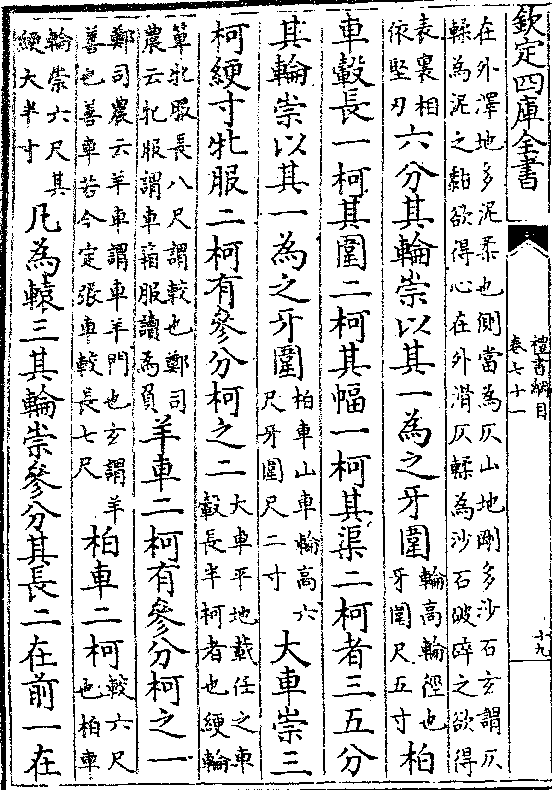 欽定四庫全書
禮書綱目
卷七十一
十九
在外澤地多泥柔也側當為仄山地剛多沙石玄謂仄
輮為泥之黏欲得心在外滑仄輮為沙石破碎之欲得
表裏相
依堅刃
六分其輪崇以其一為之牙圍
輪高輪徑也
牙圍尺五寸
柏
車轂長一柯其圍二柯其幅一柯其渠二柯者三五分
其輪崇以其一為之牙圍
柏車山車輪高六
尺牙圍尺二寸
大車崇三
柯綆寸牝服二柯有參分柯之二
大車平地載任之車
轂長半柯者也綆輪
箄牝服長八尺謂較也鄭司
農云牝服謂車箱服讀為負
羊車二柯有參分柯之一
鄭司農云羊車謂車羊門也玄謂羊
善也善車若今定張車較長七尺
柏車二柯
較六尺
也柏車
輪崇六尺其
綆大半寸
凡為轅三其輪崇參分其長二在前一在